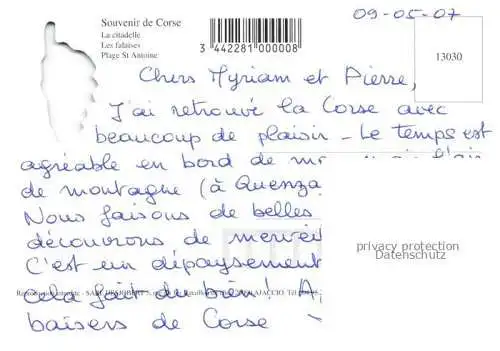 Souvenir de Corse
La citadelle
Les falaises
Plage St Antoine
3 442281 000008
09-05-07
13030
Chers Myriam et Pierre,
J'ai retrouvé la Corse avec
beaucoup de plaisir - Le temps est
agréable en bord de
de montagne (à Quenza
Nous faisons de belles
découvrons de
C'est un dépaysement
cela fait du bien !
baisers de Corse
privacy protection
Datenschutz